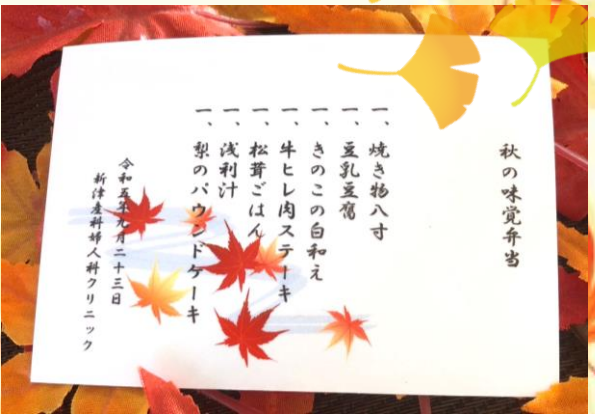 秋の味覚弁当
一、焼き物八寸
一、豆乳豆腐
一、きのこの白和え
一、牛ヒレ肉ステーキ
一、松茸ごはん
一、浅利汁
一、梨のパウンドケーキ
令和五年九月二十三日
新津産科婦人科クリニック